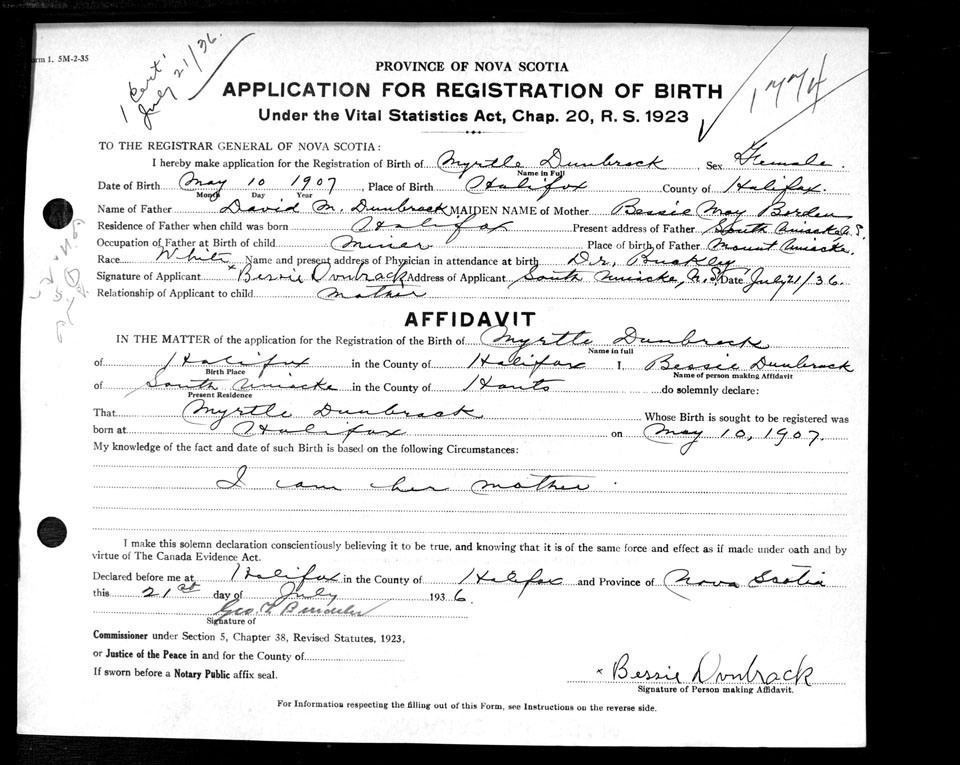 orm 1. 5M-2-35
1 Cert'
July 21/36.
1774
PROVINCE OF NOVA SCOTIA
APPLICATION FOR REGISTRATION OF BIRTH
Under the Vital Statistics Act, Chap. 20, R. S. 1923
TO THE REGISTRAR GENERAL OF NOVA SCOTIA:
I hereby make application for the Registration of Birth of Myrtle Dunbrack Sex Female.
Name in Full
Date of Birth May 10 1907, Place of Birth Halifax County of Halifax.
Month Day Year
Name of Father David M. Dunbrack MAIDEN NAME of Mother Bessie May Borden
Residence of Father when child was born Halifax Present address of Father South Uniacke N.S.
Occupation of Father at Birth of child Miner Place of birth of Father Mount Uniacke.
Race White Name and present address of Physician in attendance at birth Dr. Buckley
Signature of Applicant x Bessie Dunbrack Address of Applicant South Uniacke, N.S. Date July 21/36.
Relationship of Applicant to child mother
AFFIDAVIT
IN THE MATTER of the application for the Registration of the Birth of Myrtle Dunbrack
Name in full
of Halifax in the County of Halifax I, Bessie Dunbrack
Birth Place Name of person making Affidavit
of South Uniacke in the County of Hants do solemnly declare:
Present Residence
That Myrtle Dunbrack Whose Birth is sought to be registered was
born at Halifax on May 10, 1907.
My knowledge of the fact and date of such Birth is based on the following Circumstances:
I am her mother.
I make this solemn declaration conscientiously believing it to be true, and knowing that it is of the same force and effect as if made under oath and by
virtue of The Canada Evidence Act.
Declared before me at Halifax in the County of Halifax and Province of Nova Scotia
this 21st day of July 1936.
Geo.
Signature of
Commissioner under Section 5, Chapter 38, Revised Statutes, 1923,
or Justice of the Peace in and for the County of
If sworn before a Notary Public affix seal.
x Bessie Dunbrack
Signature of Person making Affidavit.
For Information respecting the filling out of this Form, see Instructions on the reverse side.